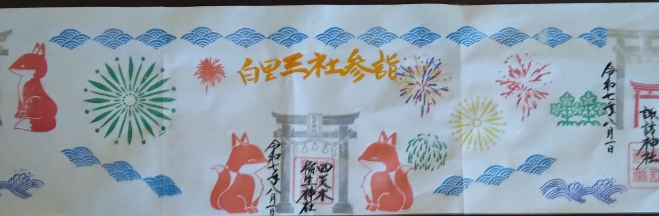 白里三社参詣
令和七年八月一日
諏訪神社
四天木
稲生神社
令和七年八月一日